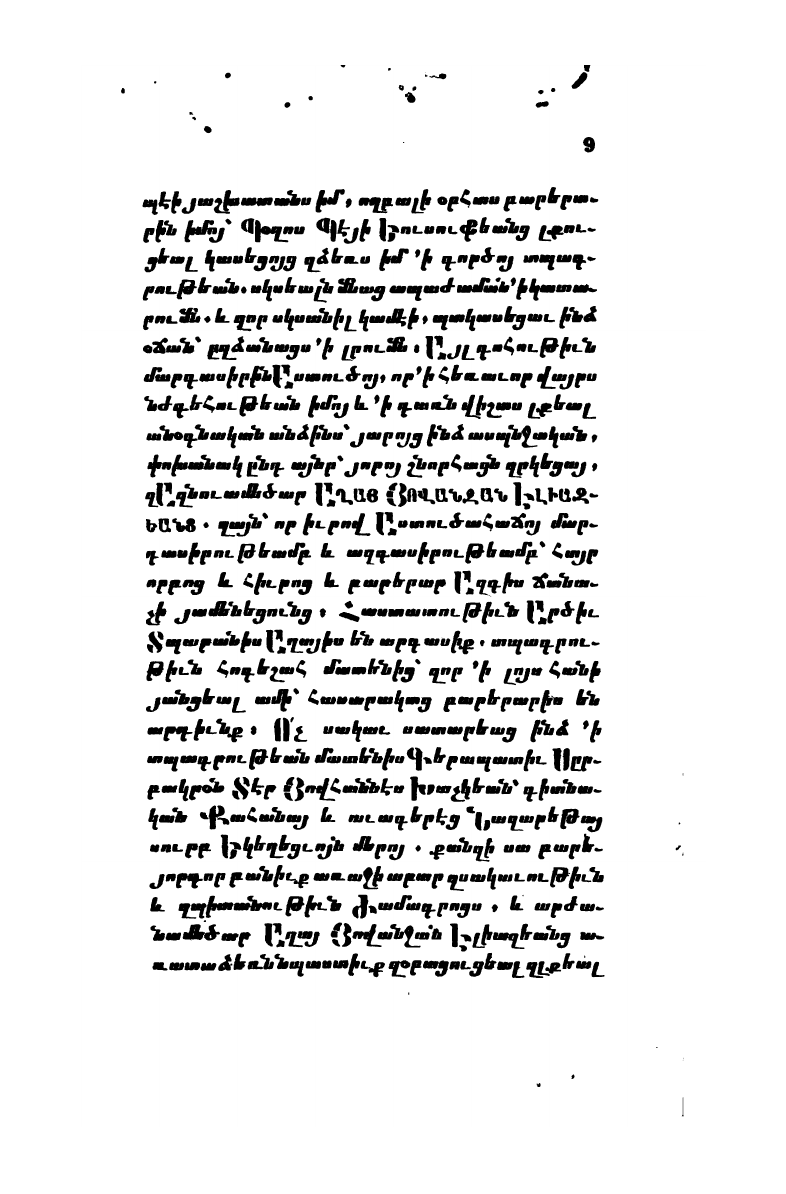 9
պէի յաշխատանս իմ, ողբալի օրհաս բարերա-
րին իմոյ՝ Պօղոս Պէյի Եուսուֆեանց լքու-
ցեալ կասեցոյց զձեռս իմ ՚ի գործոյ տպագ-
րութեան. սկսեալն մնաց ապաժաման ՚ի կատա-
րումն. և զոր սկսանիլ կամէի, պակասեցաւ ինձ
օճան՝ ըղձանացս ՚ի լրումն. Այլ գոհութիւն
մարդասիրին Աստուծոյ, որ ՚ի հեռաւոր վայրս
նժդեհութեան իմոյ և ՚ի դառն վիշտս լքեալ
անօգնական անձինս՝ յարոյց ինձ ասպնջական,
փոխանակ ընդ այնր՝ յորոյ շնորհացն զրկեցայ,
զԱզնուամեծար ԱՂԱՅ ՅՈՎԱՆՋԱՆ ԵԼԻԱԶ-
ԵԱՆՑ. զայն՝ որ իւրով Աստուծահաճոյ մար-
դասիրութեամբ և ազգասիրութեամբ՝ Հայր
որբոց և հիւրոց և բարերար Ազգիս ճանա-
չի յամենեցունց, Հաստատութիւն Արծիւ
Տպարանիս Աղայիս են արգասիք. տպագրու-
թիւն հոգեշահ մատենից՝ զոր ՚ի լոյս հանի
յանցեալ ամի՝ հասարակաց բարերարիս են
արդիւնք, Ո՛չ սակաւ սատարեաց ինձ ՚ի
տպագրութեան մատենիս Գերապատիւ Սըր-
բակրօն Տէր Յովհաննէս Խաչկեան՝ գիտնա-
կան Քահանայ և ուսագերէց Նազարեթայ
սուրբ Եկեղեցւոյն մերոյ. քանզի սա բարե-
յորդոր բանիւք առաջի արար զսակաւութիւն
և զպիտանութիւն Ժամագրոցս, և արժա-
նամեծար Աղայ Յովանջան Ելիազեանց ա-
ռատաձեռն նպաստիւք զօրացուցեալ զլքեալ